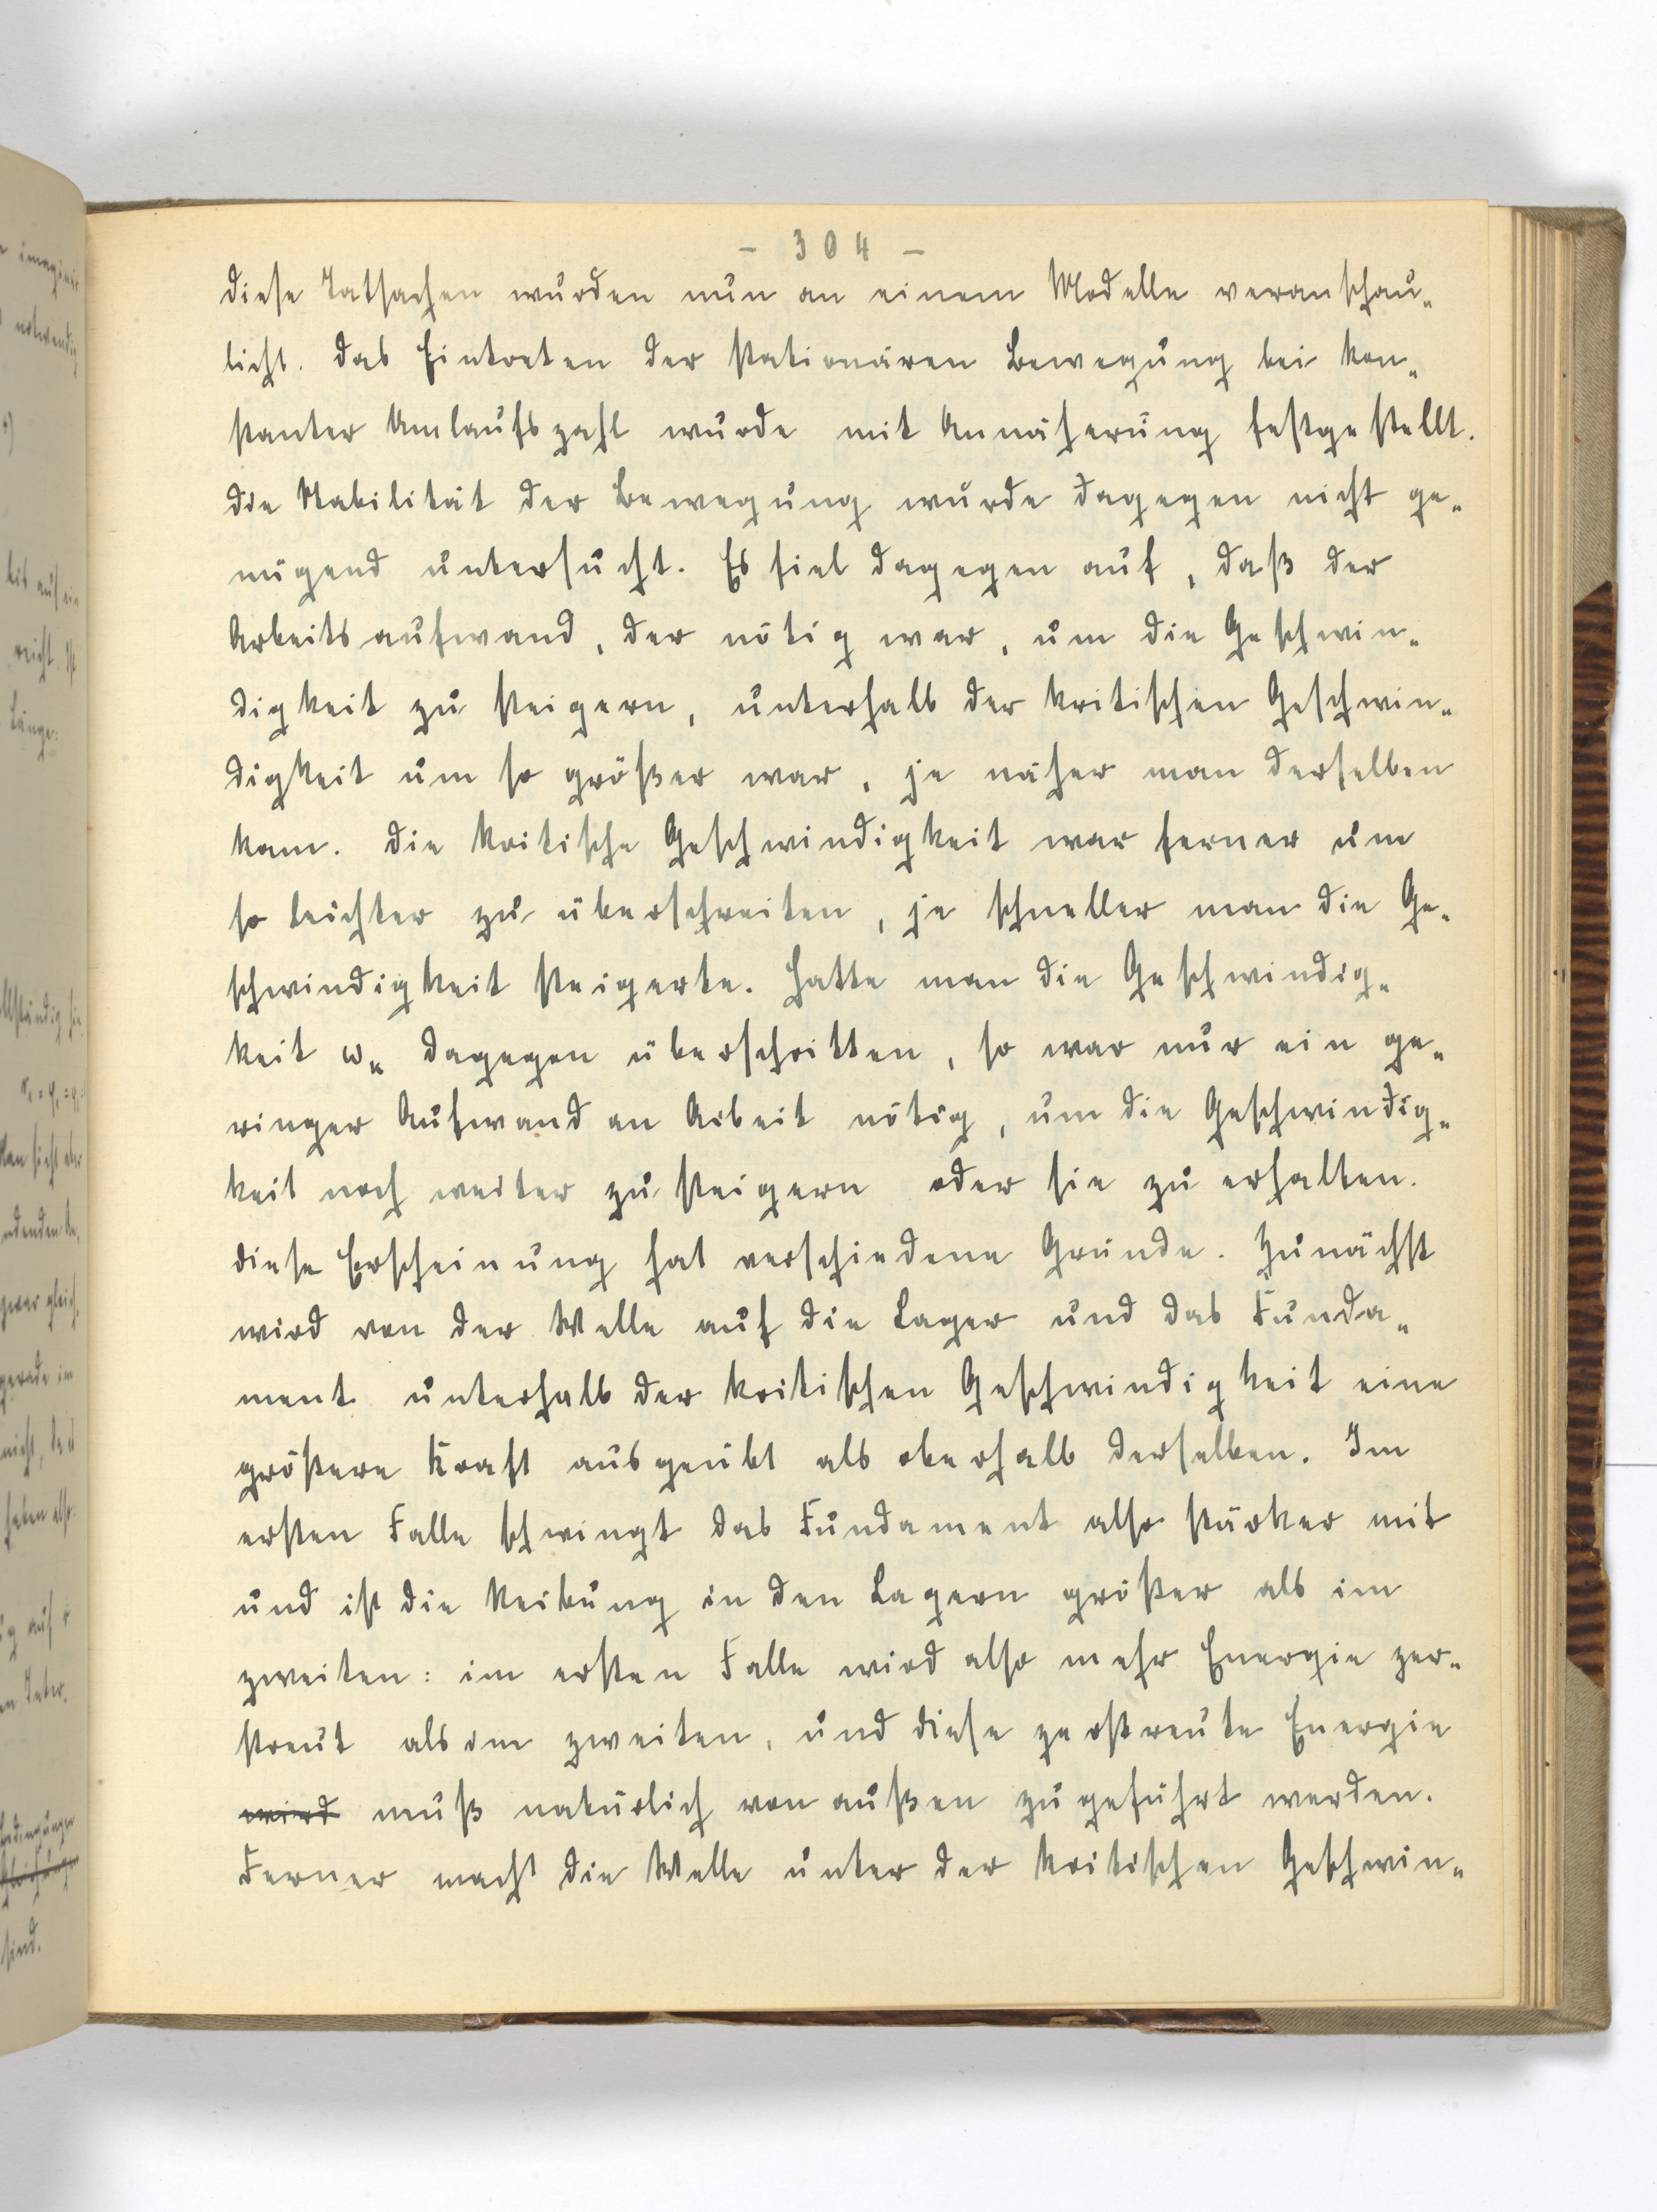 - 304 -
diese Tatsachen wurden nun an einem Modelle veranschau-
licht. Das Eintreten der stationären Bewegung bei kon-
stanter Umlaufszahl wurde mit Annäherung festgestellt.
Die Stabilität der Bewegung wurde dagegen nicht ge-
nügend untersucht. Es fiel dagegen auf, daß der
Arbeitsaufwand, der nötig war, um die Geschwin-
digkeit zu steigern, unterhalb der kritischen Geschwin-
digkeit um so größer war, je näher man derselben
kam. Die kritische Geschwindigkeit war ferner um
so leichter zu überschreiten, je schneller man die Ge-
schwindigkeit steigerte. Hatte man die Geschwindig-
keit ωₖ dagegen überschritten, so war nur ein ge-
ringer Aufwand an Arbeit nötig, um die Geschwindig-
keit noch weiter zu steigern oder sie zu erhalten.
Diese Erscheinung hat verschiedene Gründe. Zunächst
wird von der Welle auf die Lager und das Funda-
ment unterhalb der kritischen Geschwindigkeit eine
größere Kraft ausgeübt als oberhalb derselben. Im
ersten Falle schwingt das Fundament also stärker mit
und ist die Reibung in den Lagern größer als im
zweiten: im ersten Falle wird also mehr Energie zer-
streut als im zweiten, und diese zerstreute Energie
wird muß natürlich von außen zugeführt werden.
Ferner macht die Welle unter der kritischen Geschwin-